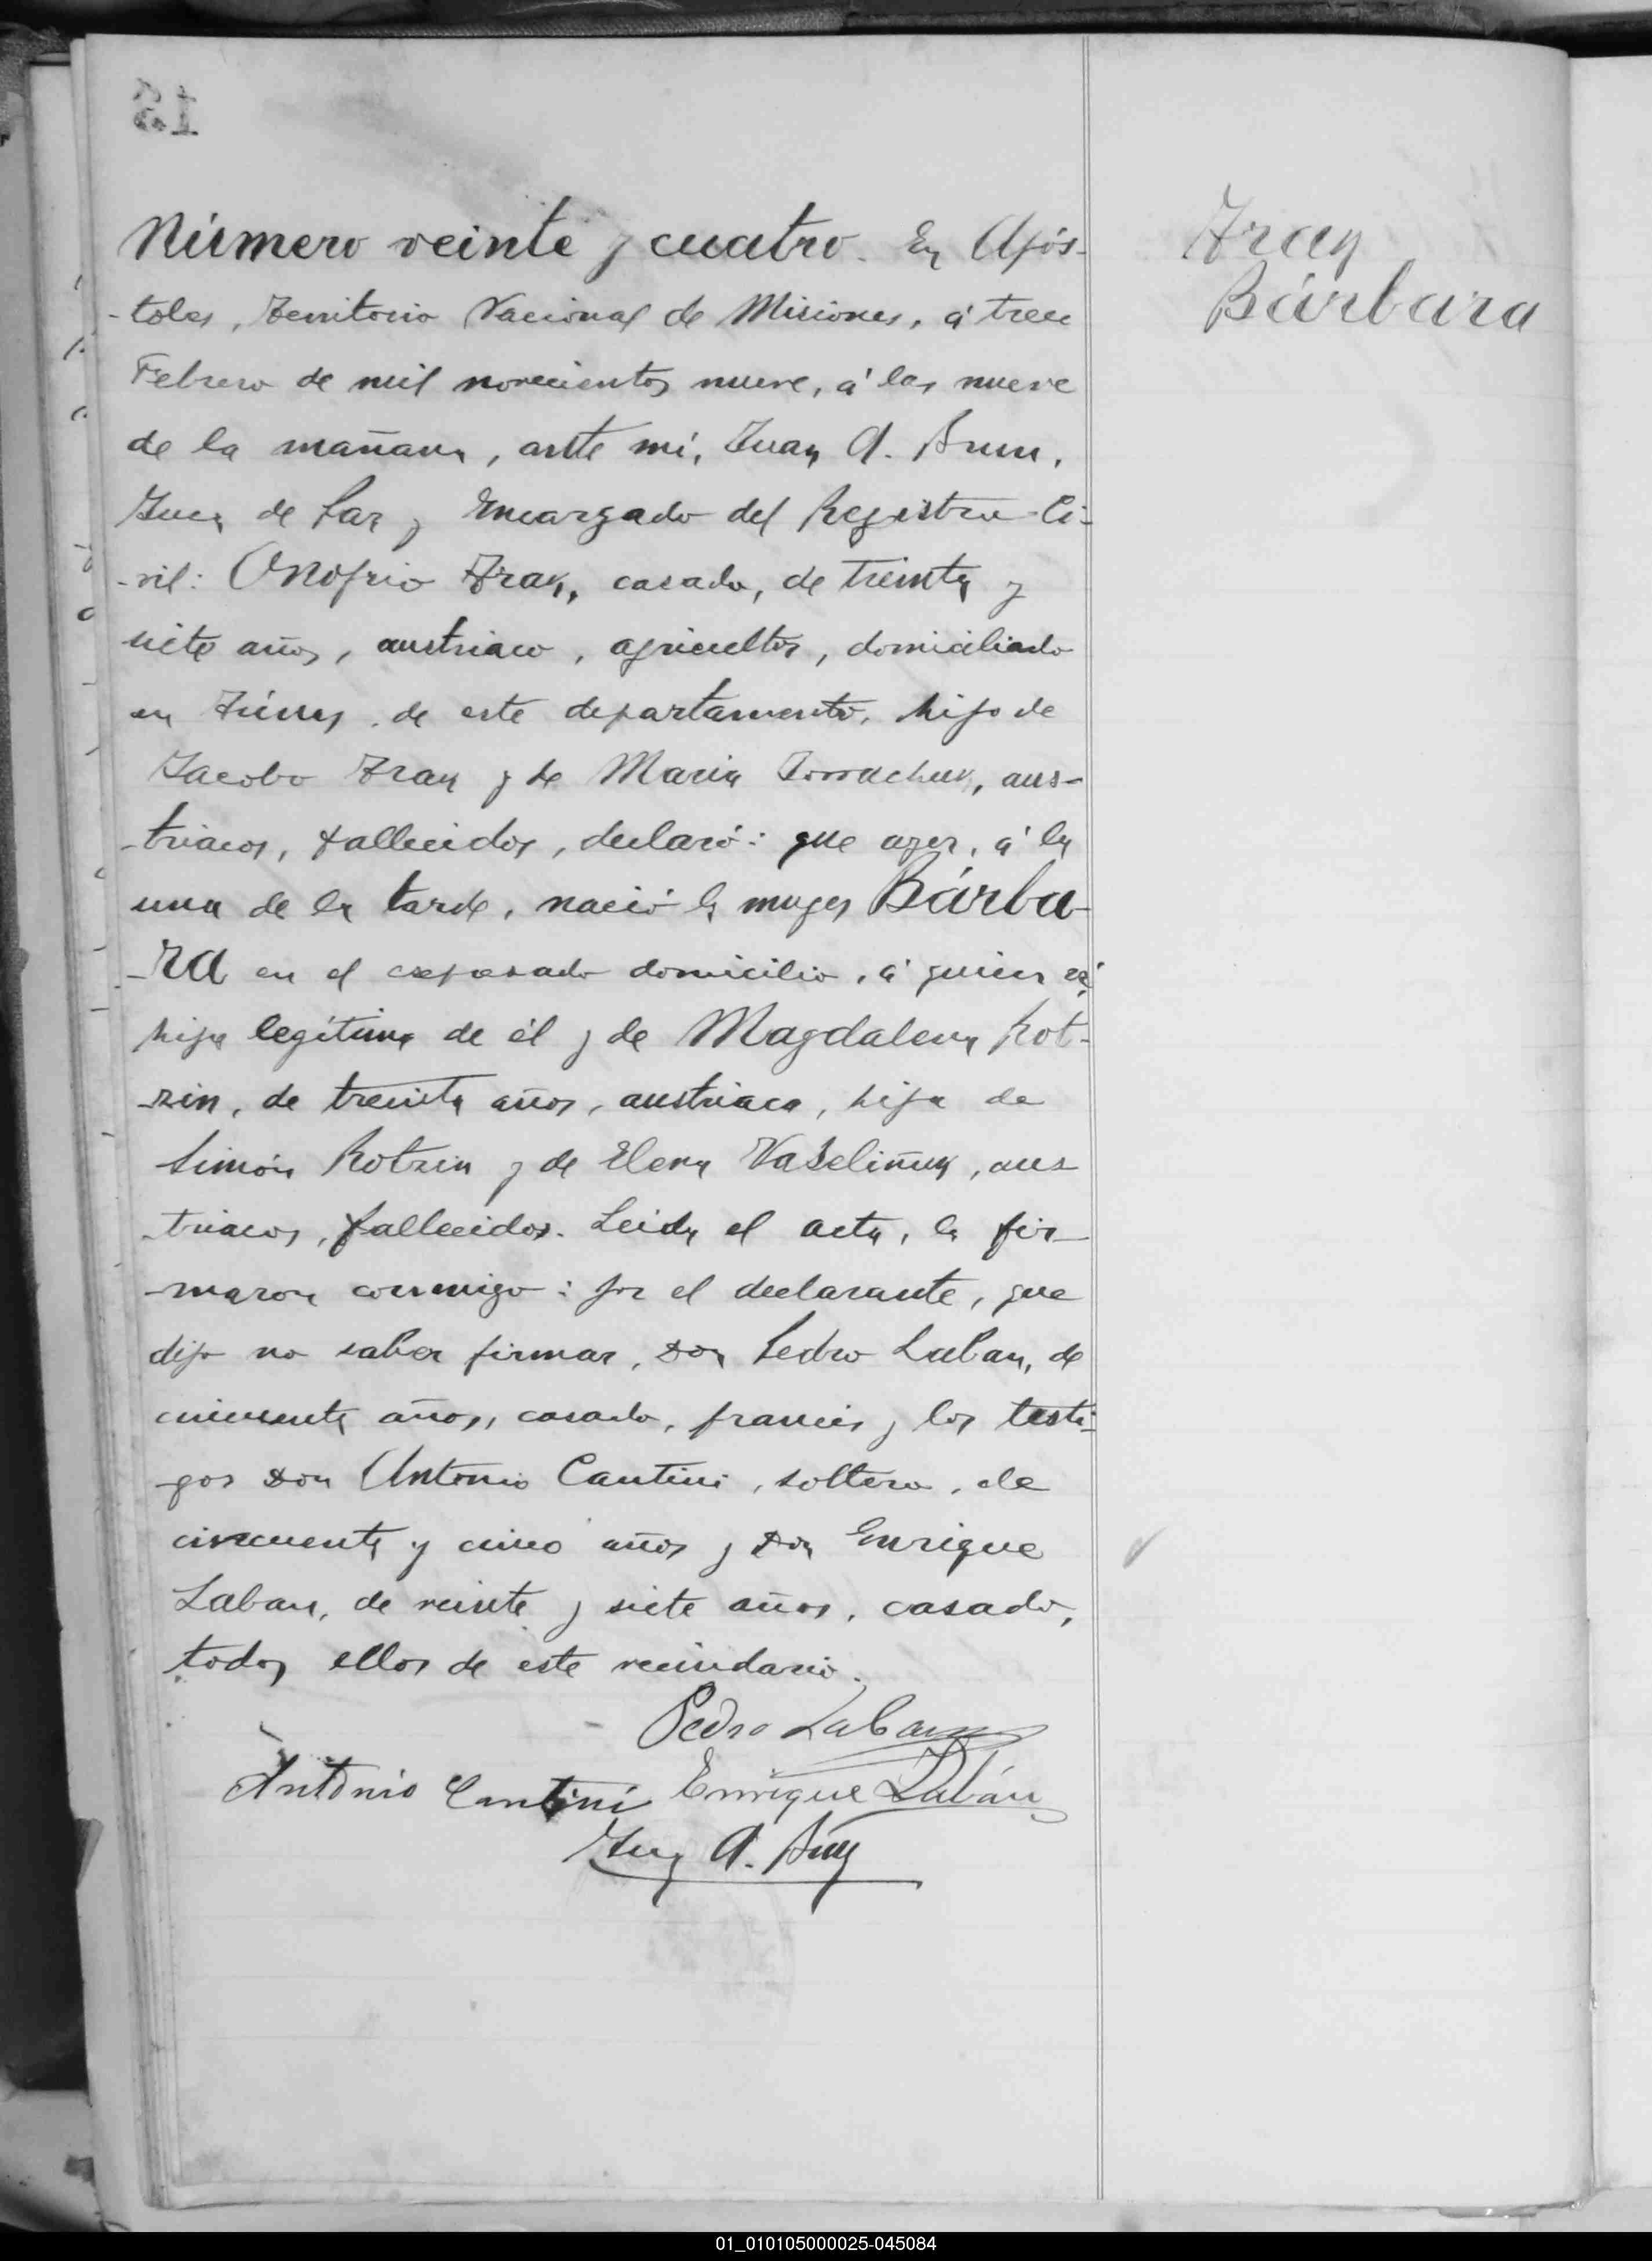 Número veinte y cuatro. En Após-
-toles, Territorio Nacional de Misiones, á trece
Febrero de mil novecientos nueve, á las nueve
de la mañana, ante mí, Juan A.
Juez de Paz y Encargado del Registro Ci-
-vil: Onofrio casado, de treinta y
siete años, austriaco, agricultor, domiciliado
en de este departamento, hijo de
Jacobo y de Maria aus-
-triacos, fallecidos, declaró: que ayer, á la
una de la tarde, nació la mujer Bárba-
-ra en el expresado domicilio, á quien es
hija legítima de él y de Magdalena Rot-
-zin, de treinta años, austriaca, hija de
Simón Rotzin y de Elena aus-
triacos, fallecidos. Leida el acta, la fir-
-maron conmigo: por el declarante, que
dijo no saber firmar, Don Pedro Laban, de
cincuenta años, casado, francés y los testi-
-gos Don Antonio Cantini, soltero, de
cincuenta y cinco años y Don Enrique
Laban, de veinte y siete años, casado,
todos ellos de este vecindario.
Pedro Laban
Antonio Cantini Enrique Labán
Juan A.
Bárbara
01_010105000025-045084